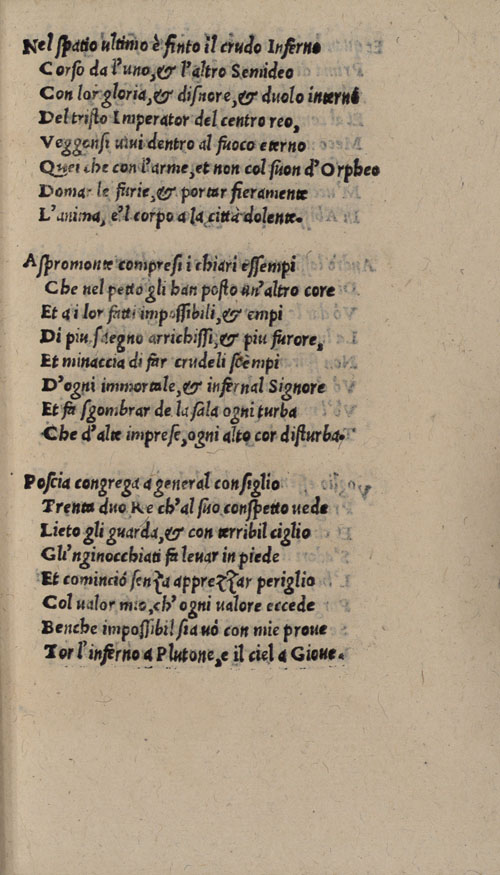 Nel spatio ultimo è finto il crudo Inferno
Corso da l'uno, & l'altro Semideo
Con lor gloria, & disnore, & duolo interno
Del tristo Imperator del centro reo,
Veggonsi uiui dentro al fuoco eterno
Quei che con l'arme, et non col suon d'Orpheo
Domar le furie, & portar fieramente
L'anima, e'l corpo a la città dolente.
Aspromonte compresi i chiari essempi
Che nel petto gli han posto un'altro core
Et a i lor fatti impossibili, & empi
Di piu sdegno arrichissi, & piu furore,
Et minaccia di far crudeli scempi
D'ogni immortale, & infernal Signore
Et fa sgombrar de la sala ogni turba
Che d'alte imprese, ogni alto cor disturba.
Poscia congrega a general consiglio
Trenta duo Re ch'al suo conspetto uede
Lieto gli guarda, & con terribil ciglio
Gli'nginocchiati fa leuar in piede
Et cominciò senza apprezzar periglio
Col ualor mio, ch'ogni ualore eccede
Benche impossibil sia uò con mie proue
Tor l'inferno a Plutone, e il ciel a Gioue.